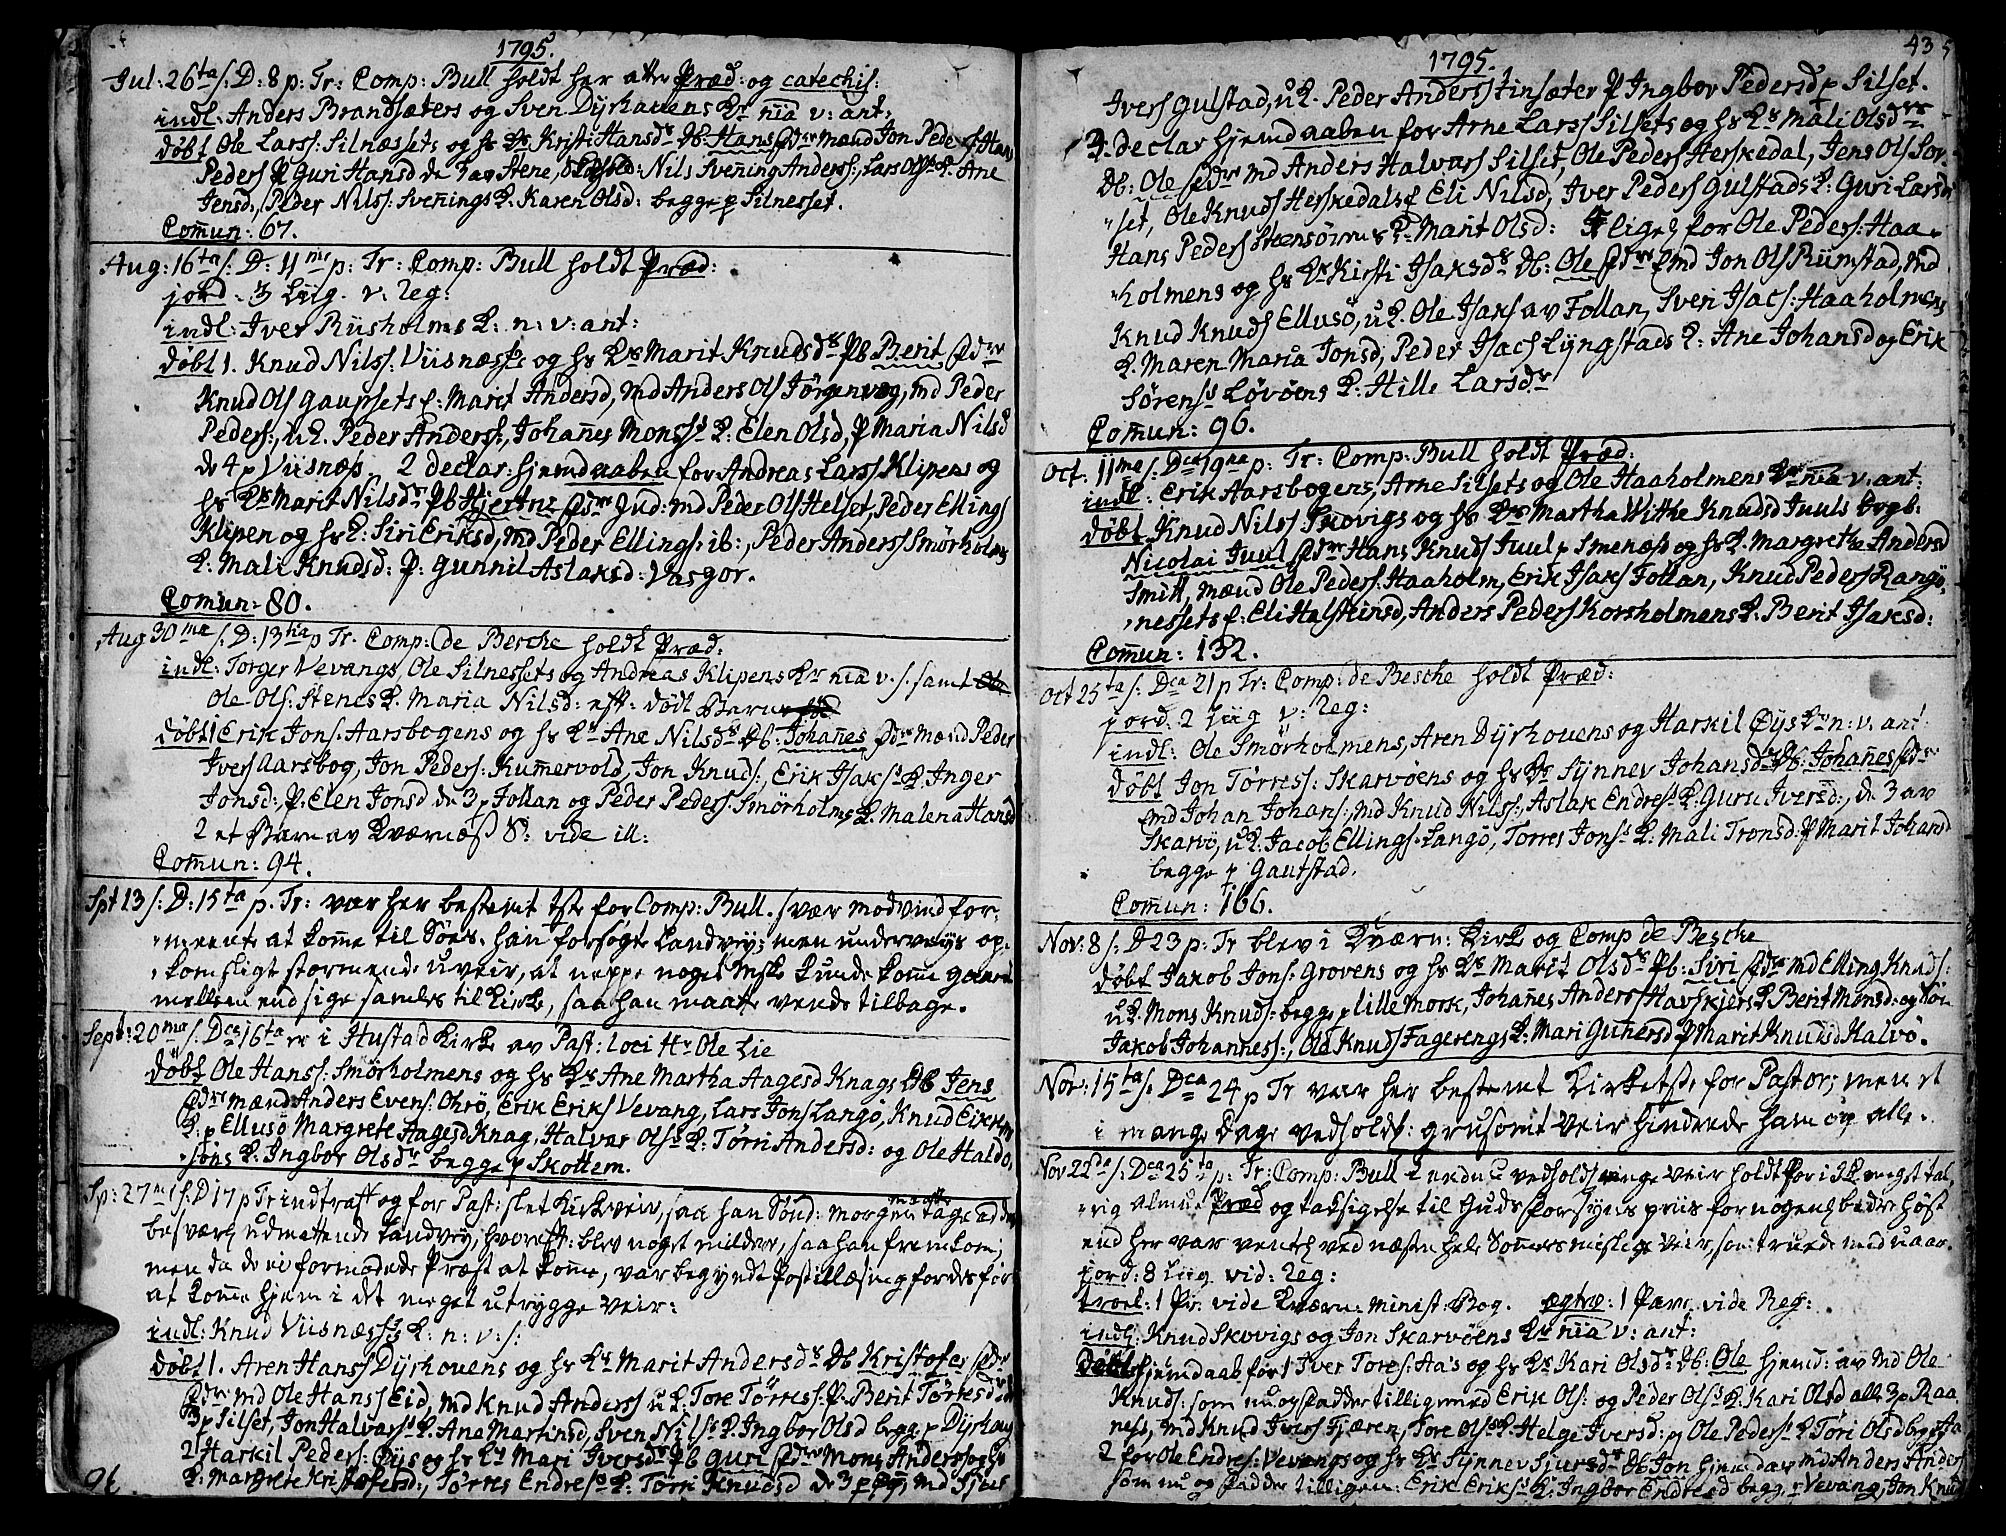 1795.
Jul: 26ta s: D: 8 p: Tr: Comp: Bull holdt her Præd: og catechis:
indl: Anders Brandsæters og Sven Dyrhauens Kr nia v: ant:
døbt Ole Larss: Silnæssets og hs Kr Kristi Hansdr Db: Hans mænd Jon Peders
Peders P Guri Hansd de Stene, Nils Svening Anderss:, Lars K: Ane
Jensd:, Peder Nilss: Svenings K. Karen Olsd: begge p Silnesset.
Comun: 67.
Aug: 16ta s: D: 11me p: Tr: Comp: Bull holdt Præd:
jord - 3 Liig. v: Reg:
indl: Iver Riisholms K: n: v: ant:
døbt 1. Knud Nilss: Viisnæss og hs Kr Marit Knudsdr Pb Berit
Knud Ols Gaupsets f: Marit Andersd, md Anders Ols Jørgenvog, md Peder
Peders:, uK. Peder Anderss:, Johañes Monss K: Elen Olsd, P Maria Nilsd
de 4 p Viisnæs. 2 declar: hjemdaaben for Andreas Larss Klipens og
hs Kr Marit Nilsdr Pb Gjertrue Gud: md Peder Ols Helset, Peder Ellings
Klipen og hs K: Siri Eriksd, md Peder Ellings: ib:, Peder Anderss Smørholms
K: Mali Knudsd: P. Gunnil Aslaksd: Vasgor.
Comun: 80.
Aug 30ma s: D: 13tia p Tr: Comp: de Besche holdt Præd:
indl: Torger Vevangs, Ole Silnessets og Andreas Klipens Kr nia v: s: samt Ole
Ole Ols: Stenes K. Maria Nilsd: eft: dødf Barn
døbt 1 Erik Jons: Aarsbogens og hs Kr Ane Nilsdr Db: Johañes mænd Peder
Ivers Aarsbog, Jon Peders: Kumervold, Jon Knuds:, Erik Isaks K: Inger
Jonsd: P. Elen Jonsd de 3 p Follan og Peder Peders: Smørholms K. Malena Hansd
2 et Barn av Kværnæs S: vide ill:
Comun: 94.
Spt 13 s: D: 15ta p. Tr: var her bestemt tste for Comp: Bull. svær modvind for-
meente at kome til Søes. han forsøgte Landvej; men underveiys op-
kom sligt stormende uveir, at neppe noget Mske kunde kome gaard
mellem end sige samles til Kirke, saa han maatte vende tilbage.
Sept: 20ma s: Dca 16ta er i Hustad Kirke av Past: loci Hr Ole Lie
døbt Ole Hanss: Smørholmens og hs Kr Ane Martha Aagesd Knags Db Jens
mænd Anders Evens: Ohrø, Erik Eriks Vevang, Lars Jons Langø, Knud Eriks
K: p Ellusø Margrete Aagesd Knag, Halvar Ols K: Tørri Andersd: og Ole Haldo,
søns K. Ingbor Olsdr begge p Skottem.
Sp: 27ma s: D 17 p Tr indtraff og for Past: slet Kirkeveir, saa han Sønd: morgen maatte tage
besværl udmattende Landvej, hvoreft: blev noget mildere, saa han fremkom;
men da de ei formodede Præst at kome, var begyndt Postillæsning fordes for
at kome hjem i det meget utrygge veir:
indl: Knud Viisnæss K: n: v: s:
døbt 1. Aren Hanss Dyrhouens og hs Kr Marit Andersdr Db Kristofer
md Ole Hanss Eid, md Knud Anderss uK: Tore Tørress: P. Berit Tørresd
3 p Silset, Jon Halvars K. Ana Martinsd, Sven Nils K. Ingbor Olsd begge p Dyrhaug
2 Harkil Peders: Øys og hs Kr Mari Iversdr Pb Guri Mons Anderss og hs
K: Margrete Kristofersd:, Tørres Endres K: Tørri Knudsd de 3 p Øy, md Sjur
43
1795.
Ivers Gulstad, uK. Peder Anders Stinsæter P Ingbor Pedersd p Silset.
3. declar hjemdaaben for Arne Larss Silsets og hs Kr Mali Olsdr
Db: Ole md Anders Halvars Silset, Ole Peders Herskedal, Jens Ols Sor-
set, Ole Knuds Herskedals f Eli Nilsd, Iver Peders Gulstads K: Guri Larsdr
Hans Peders Steensørens K: Marit Olsd: 4 lige for Ole Peders: Haa-
holmens og hs Kr Kirsti Isaksdr Db: Ole md Jon Ols Rumstad, md
Knud Knuds Ellusø, uK. Ole Isaks av Follan, Sven Isacs: Haaholmens
K. Maren Maria Jonsd, Peder Isacs Lyngstads K: Ane Johansd og Erik
Sørens Løvøens K: Hille Larsdr
Comun: 96.
Oct: 11ma s: Dca 19na p: Tr: Comp: Bull holdt Præd:
indl: Erik Aarsbogens, Arne Silsets og Ole Haaholmens Kr nia v: ant:
døbt Knud Nilss: Skovigs og hs Kr Martha Withe Knudsd Juuls Drgb:
Nicolai Juul Hans Knuds Juul p Smenæs og hs K. Margrethe Andersd
Smitt, mænd Ole Peders: Haaholm, Erik Isaks Follan, Knud Peders Rangø,
nessets f: Eli Halstensd, Anders Peders Korsholmens K. Berit Isaksd:
Comun: 132.
Oct 25ta s: Dca 21 p Tr: Comp: de Besche holdt Præd:
jord: 2 Liig v: Reg:
indl: Ole Smørholmens, Aren Dyrhouens og Harkil Øys Kr n: v: ant:
døbt Jon Tørress: Skarvøens og hs Kr Synnev Johansdr Db: Johañes
md Johan Johans:, md Knud Nilss:, Aslak Endres K. Guru Iversd:, de 3 av
Skarvø, uK. Jacob Ellings: Langø, Torres Jons K. Mali Tronsd. P Marit Johansd
begge p Gautstad.
Comun: 166.
Nov: 8 s: D 23 p: Tr blev i Kværn: Kirke og Comp de Besche
døbt Jakob Jons: Grovens og hs Kr Marit Olsdr Pb: Siri md Elling Knuds:
uK. Mons Knuds: begge p lille Mork, Johañes Anderss Havskjers K Berit Monsd: og
Jakob Johañess:, Ole Knuds Fagerengs K. Mari Guñersd P Marit Knudsd Halvø.
Nov: 15ta s: Dca 24 p Tr var her bestemt Kirketste for Pastor; men et
i mange Dage vedhold: grusomt veir hindrede ham og alle.
Nov 22da s: Dca 25ta p: Tr: Comp: Bull vedhold veir holdt for i meget tal,
rig almue Præd og taksigelse til Guds forsyns priis for nogenl bedre høst
end her var ventel ved næsten hele Somers mislige veir, som truede med uaar.
jord: 8 Liig vid: Reg:
trol: 1 Pr. vide Kværn: minist: Bog. ægtv: 1 Par vide Reg:
indl: Knud Skovigs og Jon Skarvøens Kr nia v: ant:
hjemdaab for 1 Iver Tores: Aas og hs Kr Kari Olsdr Db: Ole hjemd: av md Ole
Knuds: som nu og fadder tillige med Erik Ols: og Peder Ols K. Kari Olsd alle 3 p Raa
nes, md Knud Ivers Fjæren, Tore Ols K. Helge Iversd: p Ole Peders K Tøri Olsd begge
2 for Ole Endres: Vevangs og hs Kr Synnev Sjursdr Db Jon hjemd av md Anders Anders
som nu og Fadder tilligem: Erik Eriks K: Ingbor Endresd begge p Vevang, Jon Knuds